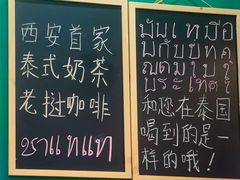 西安首家
泰式奶茶
老挝咖啡
ชาแทแท
มันเหมือ
นกับที่ค
ุณดื่มใน
ประเทศไ
和您在泰国
喝到的是一
样的哦！